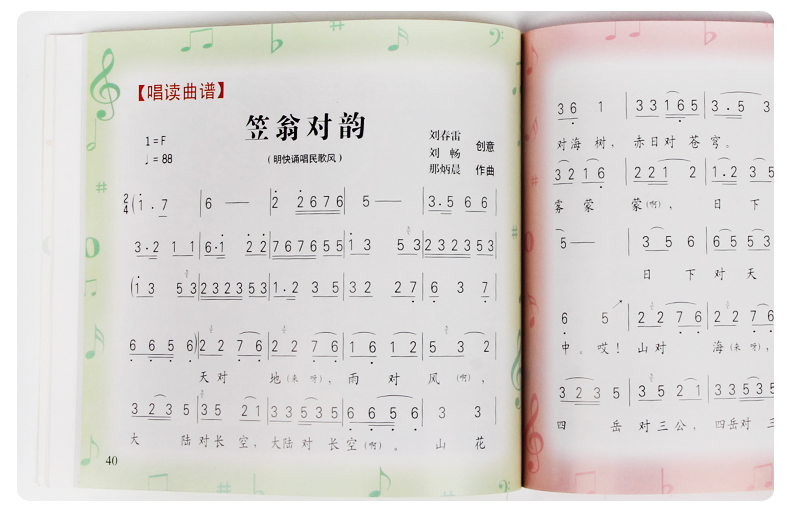 【唱读曲谱】
笠翁对韵
1＝F
♩＝88
（明快诵唱民歌风）
刘春雷
刘 畅 创意
那炳晨 作曲
2/4 (1 . 7 | 6 — | 2 2 6 7 6 | 5 — | 3 . 5 6 6 |
3 · 2 1 1 | 6 · 1 2 2 | 7 6 7 6 5 5 | 1 3 5 3 | 2 3 2 3 5 3 |
(1 3 5 3 | 2 3 2 3 5 3 | 1 . 2 3 5 | 3 2 2 7 | 6 3 7 |
6 6 5 6) | 2 2 7 6 | 2 2 7 6 | 1 6 1 2 | 5 3 2 |
天对 地（来呀），雨 对 风（啊），
3 2 3 5 | 3 5 2 1 | 3 3 5 3 5 | 6 6 5 6 | 3 3
大 陆对长 空，大陆对 长空（啊）。 山 花
40
3 6 1 | 3 3 1 6 5 | 3 . 5 3
对海 树，赤日对 苍 穹。
3 2 1 6 | 2 2 1 2 | 1 . 2 3 5
雾 蒙 蒙（啊）， 日 下
5 — | 3 5 6 | 6 5 5 3
日 下 对 天
6 5 | 2 2 7 6 | 2 2 7 6
中。哎！山对 海（来呀），
3 2 3 5 | 3 5 2 1 | 3 3 5 3 5
四 岳 对三公，四岳对 三